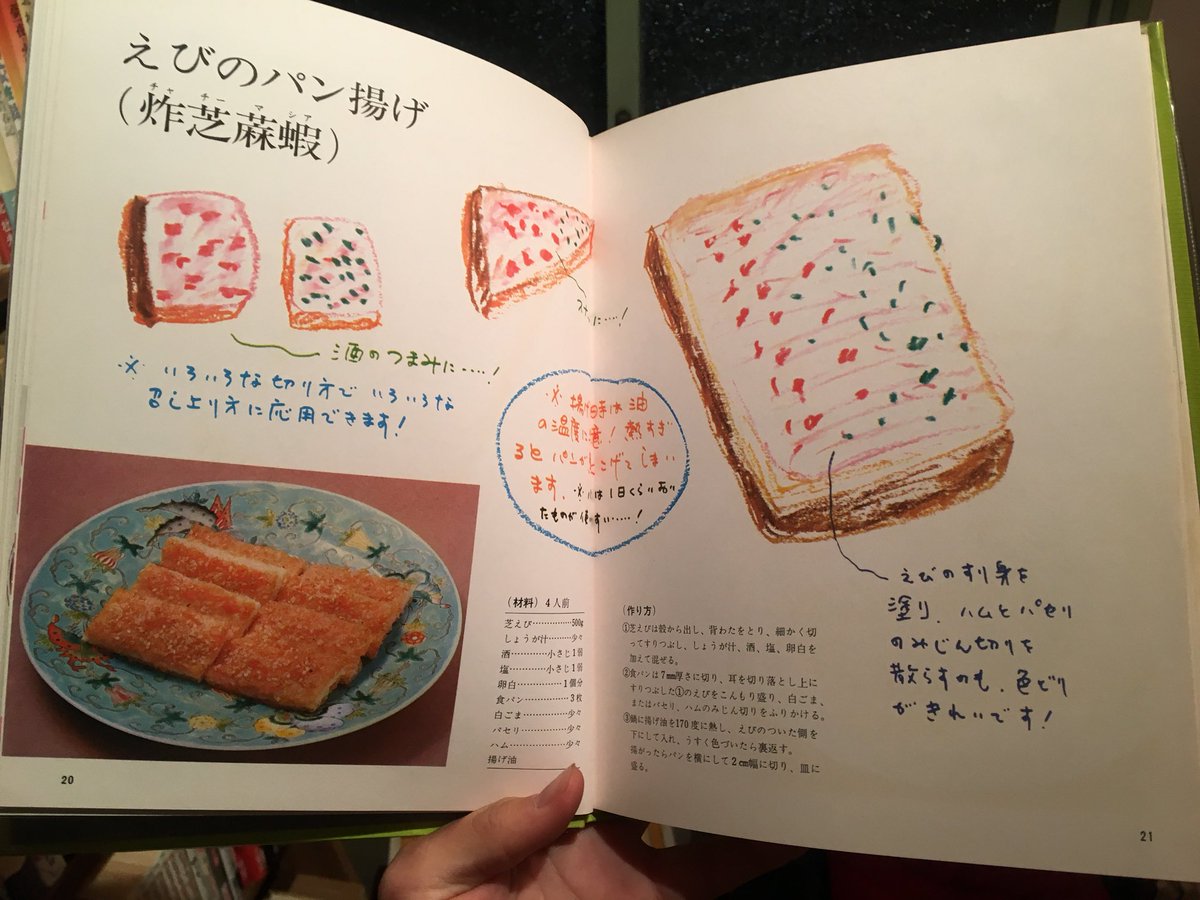 えびのパン揚げ
(炸芝蔴蝦)
チャ チー マ シア
酒のつまみに……!
※ いろいろな切り方で いろいろな
召し上り方に応用できます!
※ 揚げ時は 油
の温度に 熱すぎ
るとパンがとこげてしまい
ます。※ は1日くらい
たものが
(材料) 4人前
芝えび…………500g
しょうが汁………少々
酒…………小さじ1個
塩…………小さじ1個
卵白…………1個分
食パン…………3枚
白ごま…………少々
パセリ…………少々
ハム…………少々
揚げ油
20
(作り方)
①芝えびは殻から出し、背わたをとり、細かく切
ってすりつぶし、しょうが汁、酒、塩、卵白を
加えて混ぜる。
②食パンは7mm厚さに切り、耳を切り落とし上に
すりつぶした①のえびをこんもり盛り、白ごま、
またはパセリ、ハムのみじん切りをふりかける。
③鍋に揚げ油を170度に熱し、えびのついた側を
下にして入れ、うすく色づいたら裏返す。
揚がったらパンを横にして2cm幅に切り、皿に
盛る。
えびのすり身を
塗り、ハムとパセリ
のみじん切りを
散らすのも、色どり
がきれいです!
21